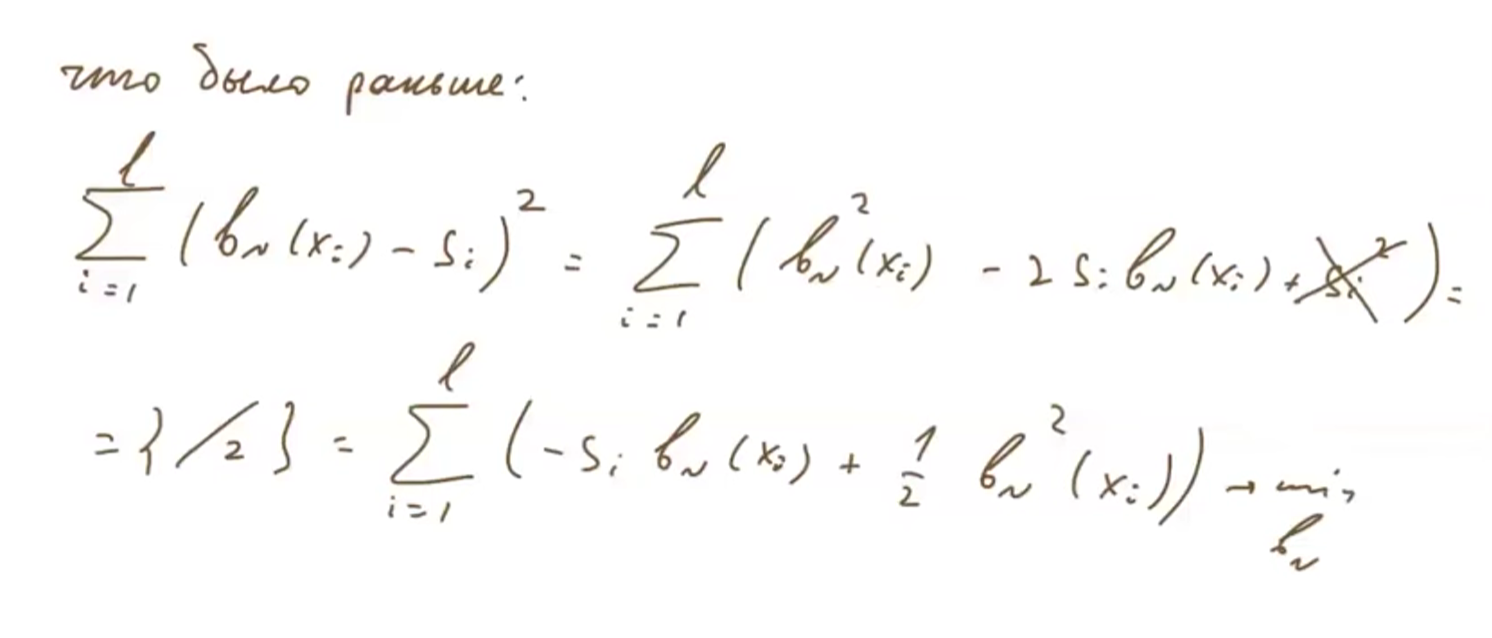 что было раньше:
$\sum_{i=1}^{l} (b_N(x_i) - s_i)^2 = \sum_{i=1}^{l} (b_N^2(x_i) - 2 s_i b_N(x_i) + \cancel{s_i^2}) =$
$= \{/2\} = \sum_{i=1}^{l} (-s_i b_N(x_i) + \frac{1}{2} b_N^2(x_i)) \to \min_{b_N}$